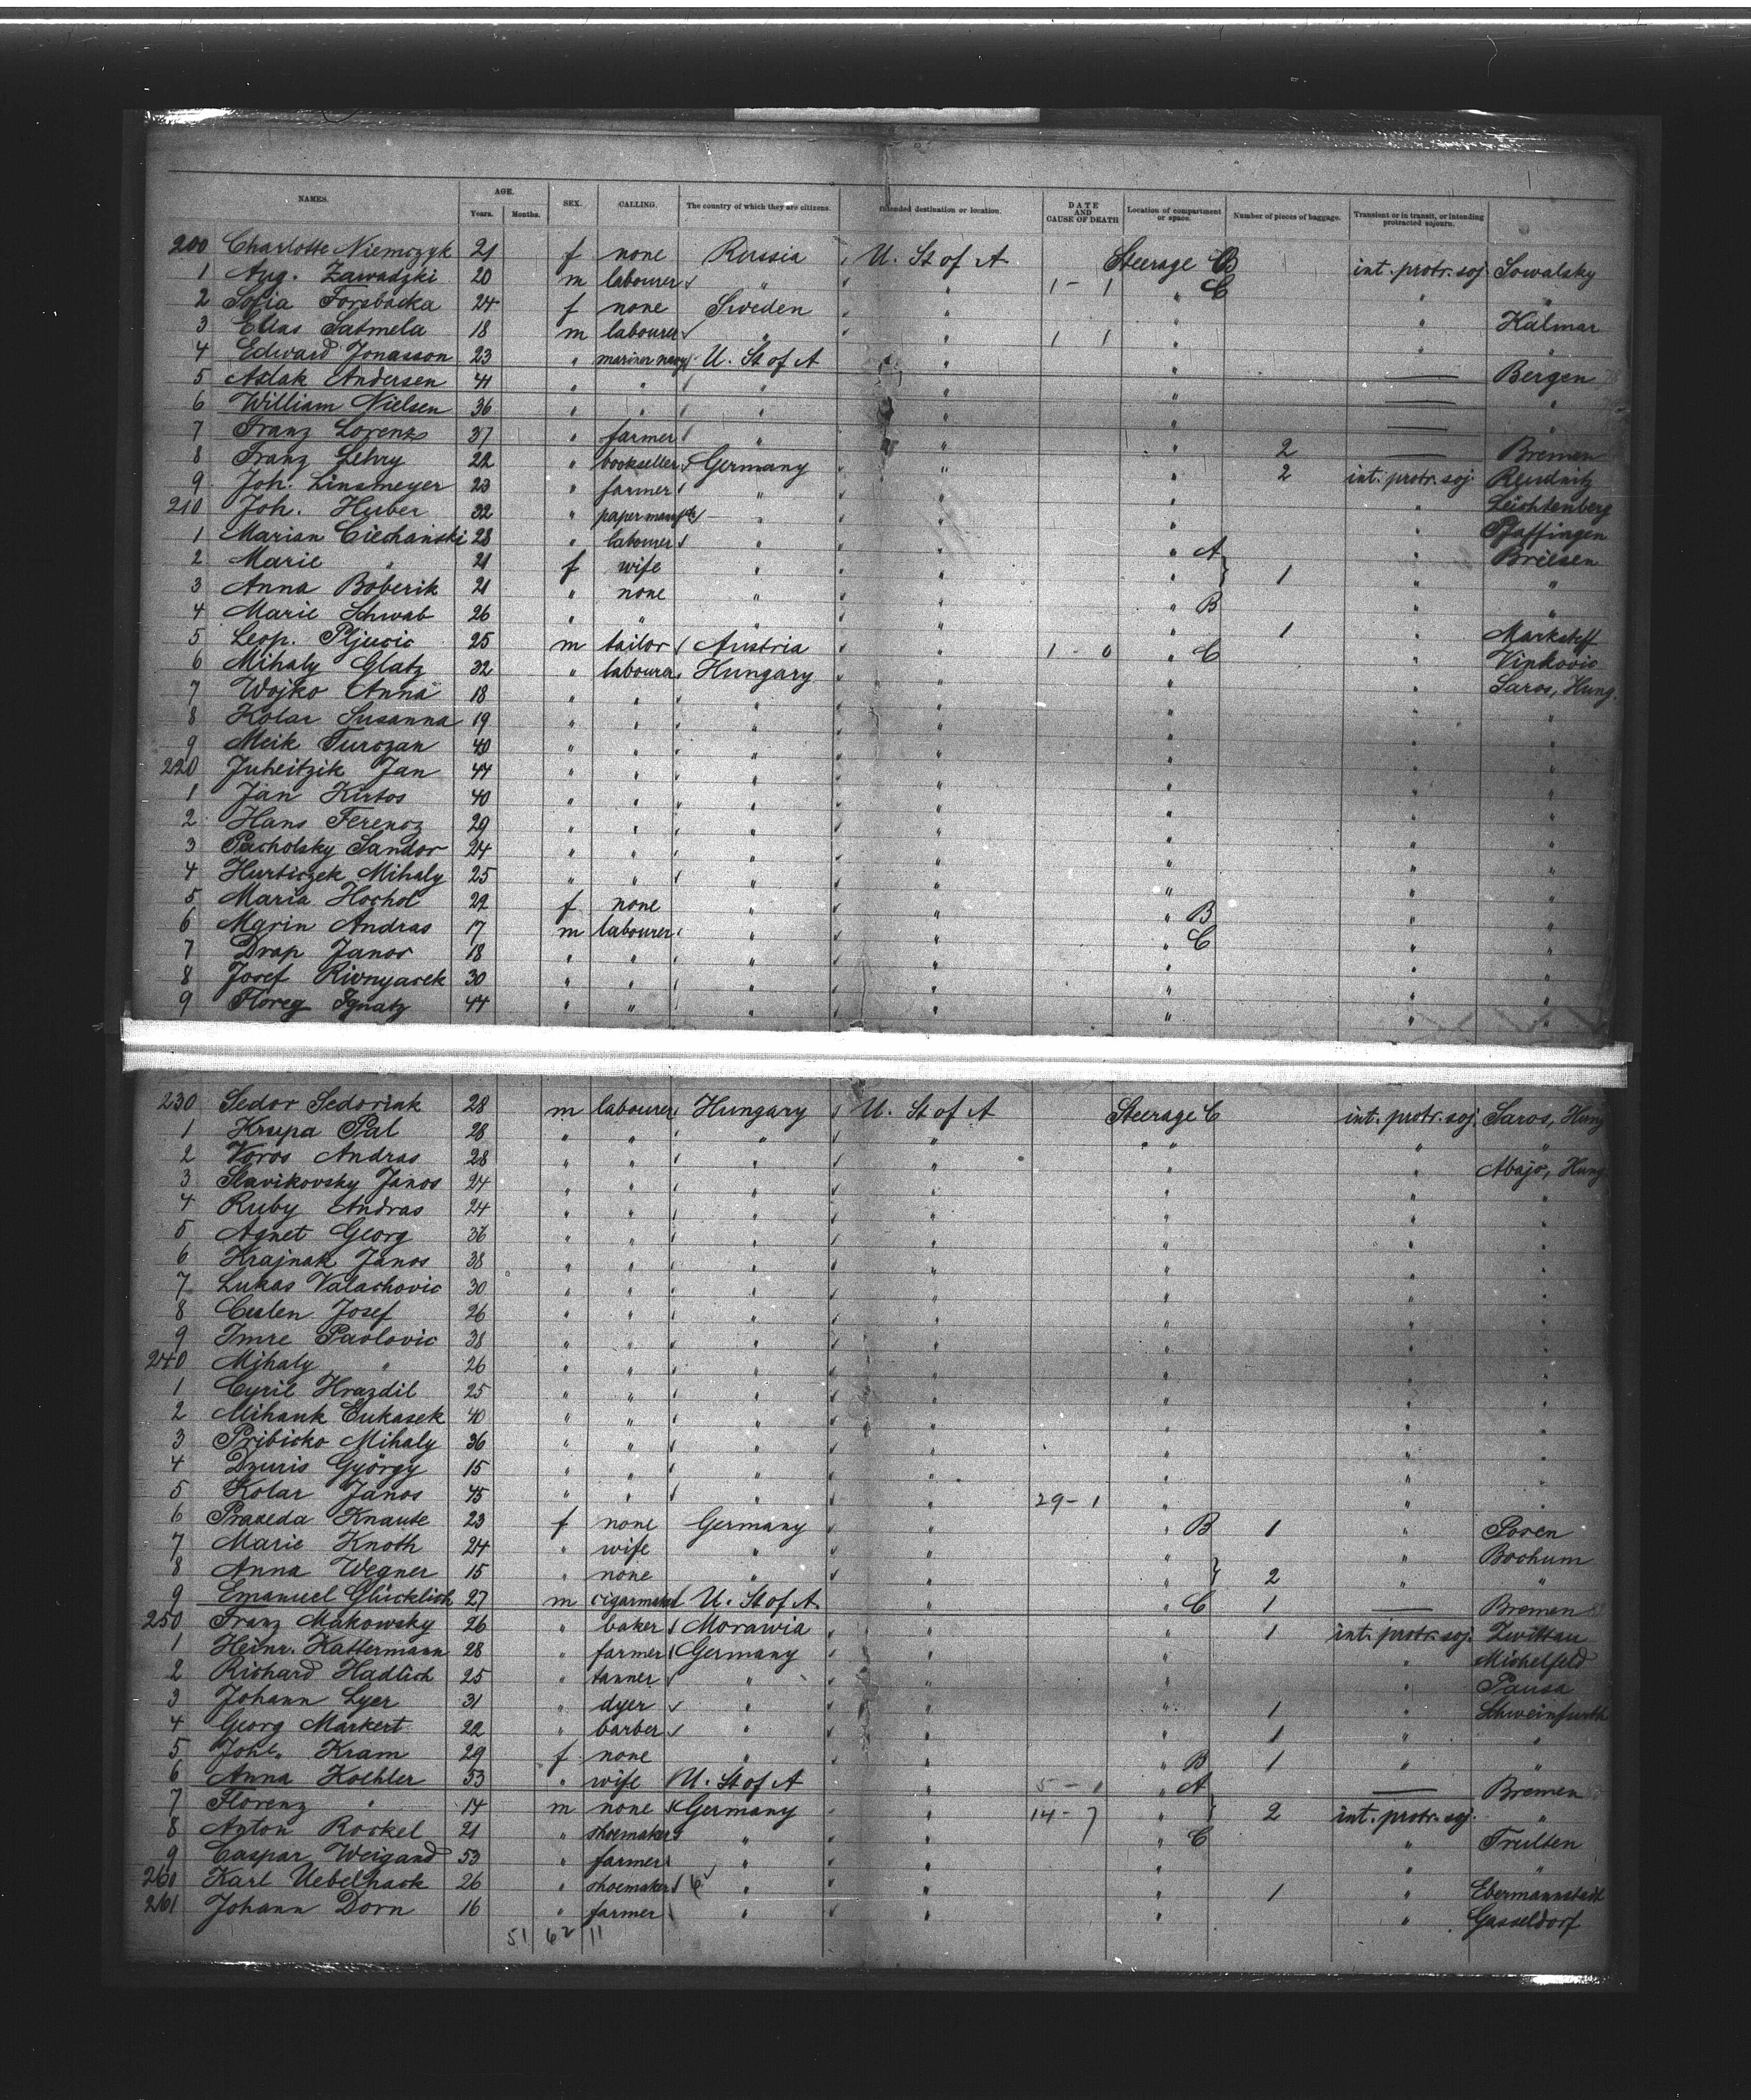 NAMES. AGE. SEX. CALLING. The country of which they are citizens. Intended destination or location. DATE AND CAUSE OF DEATH Location of compartment or space. Number of pieces of baggage. Transient or in transit, or intending protracted sojourn.
Years. Months.
200 Charlotte Niemczyk 21 f none Russia U. St of A Steerage B int. protr. soj. Sowalsky
1 Aug. Zawadzki 20 m labourer " " 1 - 1 " C " "
2 Sofia Forsbacka 24 f none Sweden " " " Kalmar
3 Elias Satmela 18 m labourer " " 1 1 " " "
4 Edward Jonasson 23 " mariner navy U. St of A " " — Bergen
5 Aslak Andersen 41 " " " " " — "
6 William Nielsen 36 " " " " " — "
7 Franz Lorenz 37 " farmer " " " 2 — Bremen
8 Franz Lehry 22 " bookseller Germany " " 2 int. protr. soj. Reudnitz
9 Joh. Linsmeyer 23 " farmer " " " " Leichtenberg
210 Joh. Huber 32 " " " " " Pfaffingen
1 Marian Ciechanski 28 " labourer " " " A " Briesen
2 Marie " 21 f wife " " " } 1 " "
3 Anna Boberik 21 " none " " " B " "
4 Marie Schwab 26 " " " " " 1 "
5 Leop. Pljucic 25 m tailor Austria " 1 - 0 " C " Vinkovic
6 Mihaly Glatz 32 " labourer Hungary " " " Saros, Hung.
7 Wojko Anna 18 " " " " " " "
8 Kolar Susanna 19 " " " " " " "
9 Meik Turozan 40 " " " " " " "
220 Juheitzik Jan 44 " " " " " " "
1 Jan Kirtos 40 " " " " " " "
2 Hans Ferencz 29 " " " " " " "
3 Pacholsky Sandor 24 " " " " " " "
4 Hurticzek Mihaly 25 " " " " " " "
5 Maria Hochol 22 f none " " " B " "
6 Marin Andras 17 m labourer " " " C " "
7 Drap Janos 18 " " " " " " "
8 Josef Rivnyacek 30 " " " " " " "
9 Floreg Ignatz 44 " " " " " " "
230 Sedor Sedoriak 28 m labourer Hungary U. St of A Steerage C int. protr. soj. Saros, Hung
1 Krupa Pal 28 " " " " " " " "
2 Voros Andras 28 " " " " " " Abajo, Hung
3 Slavikovsky Janos 24 " " " " " " "
4 Ruby Andras 24 " " " " " " "
5 Agnet Georg 36 " " " " " " "
6 Krajnak Janos 38 " " " " " " "
7 Lukas Valachovic 30 " " " " " " "
8 Ceslen Josef 26 " " " " " " "
9 Imre Pavlovic 38 " " " " " " "
240 Mihaly " 26 " " " " " " "
1 Cyril Hrazdil 25 " " " " " " "
2 Mihank Cukasek 40 " " " " " " "
3 Pribicko Mihaly 36 " " " " " " "
4 Dzuris György 15 " " " " " " "
5 Kolar Janos 45 " " " " 29 - 1 " " "
6 Praxeda Knaute 23 f none Germany " " B 1 " Posen
7 Marie Knoth 24 " wife " " " " Bochum
8 Anna Wegner 15 " none " " " } 2 " "
9 Emanuel Glücklich 27 m cigarmaker U. St of A. " " C 1 — Bremen
250 Franz Makowsky 26 " baker Morawia " " 1 int. protr. soj. Zwittau
1 Heinr. Kattermann 28 " farmer Germany " " " Michelfeld
2 Richard Hadlich 25 " tanner " " " " Pausa
3 Johann Lyer 31 " dyer " " " 1 " Schweinfurth
4 Georg Markert 22 " barber " " " 1 " "
5 Johe. Kram 29 f none " " " B 1 " "
6 Anna Koehler 53 " wife U. St of A " 5 - 1 " A — Bremen
7 Florenz " 14 m none Germany " 14 - 7 " } 2 int. protr. soj. "
8 Anton Rockel 21 " shoemaker " " " C " Trulsen
9 Caspar Weigand 53 " farmer " " " " "
260 Karl Uebelhack 26 " shoemaker " " " 1 " Ebermannstadt
261 Johann Dorn 16 " farmer " " " " Gasseldorf
51 62 11